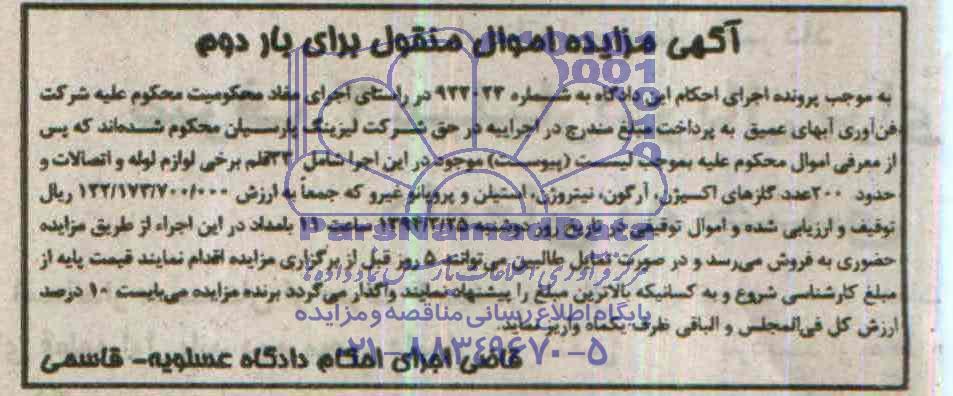 آگهی مزایده اموال منقول برای بار دوم
به موجب پرونده اجرای احکام این دادگاه به شماره ۹۲۲۰۲۳ در راستای اجرای مفاد محکومیت محکوم علیه شرکت
فن‌آوری آبهای عمیق به پرداخت مبلغ مندرج در اجراییه در حق شرکت لیزینگ پارسیان محکوم شده‌اند که پس
از معرفی اموال محکوم علیه بموجب لیست (پیوست) موجود در این اجرا شامل ۳۳قلم برخی لوازم لوله و اتصالات و
حدود ۲۰۰عدد گازهای اکسیژن، آرگون، نیتروژن، استیلن و پروپان و غیرو که جمعاً به ارزش ۱۲۲/۱۷۳/۷۰۰/۰۰۰ ریال
توقیف و ارزیابی شده و اموال توقیفی در تاریخ روز دوشنبه ۱۳۹۳/۳/۲۵ ساعت ۱۱ بامداد در این اجراء از طریق مزایده
حضوری به فروش می‌رسد و در صورت تمایل طالبین می‌توانند ۵ روز قبل از برگزاری مزایده اقدام نمایند قیمت پایه از
مبلغ کارشناسی شروع و به کسانیکه بالاترین مبلغ را پیشنهاد نمایند واگذار می‌گردد برنده مزایده می‌بایست ۱۰ درصد
ارزش کل فی‌المجلس و الباقی ظرف یکماه واریز نماید.
قاضی اجرای احکام دادگاه عسلویه- قاسمی
ParsNamadData
پایگاه اطلاع رسانی مناقصه و مزایده
۰۲۱-۸۸۳۴۹۶۷۰-۵